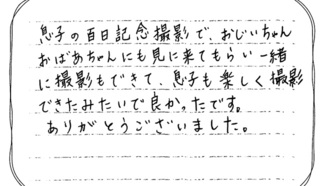 息子の百日記念撮影で、おじいちゃん
おばあちゃんにも見に来てもらい一緒
に撮影もできて、息子も楽しく撮影
できたみたいで良かったです。
ありがとうございました。